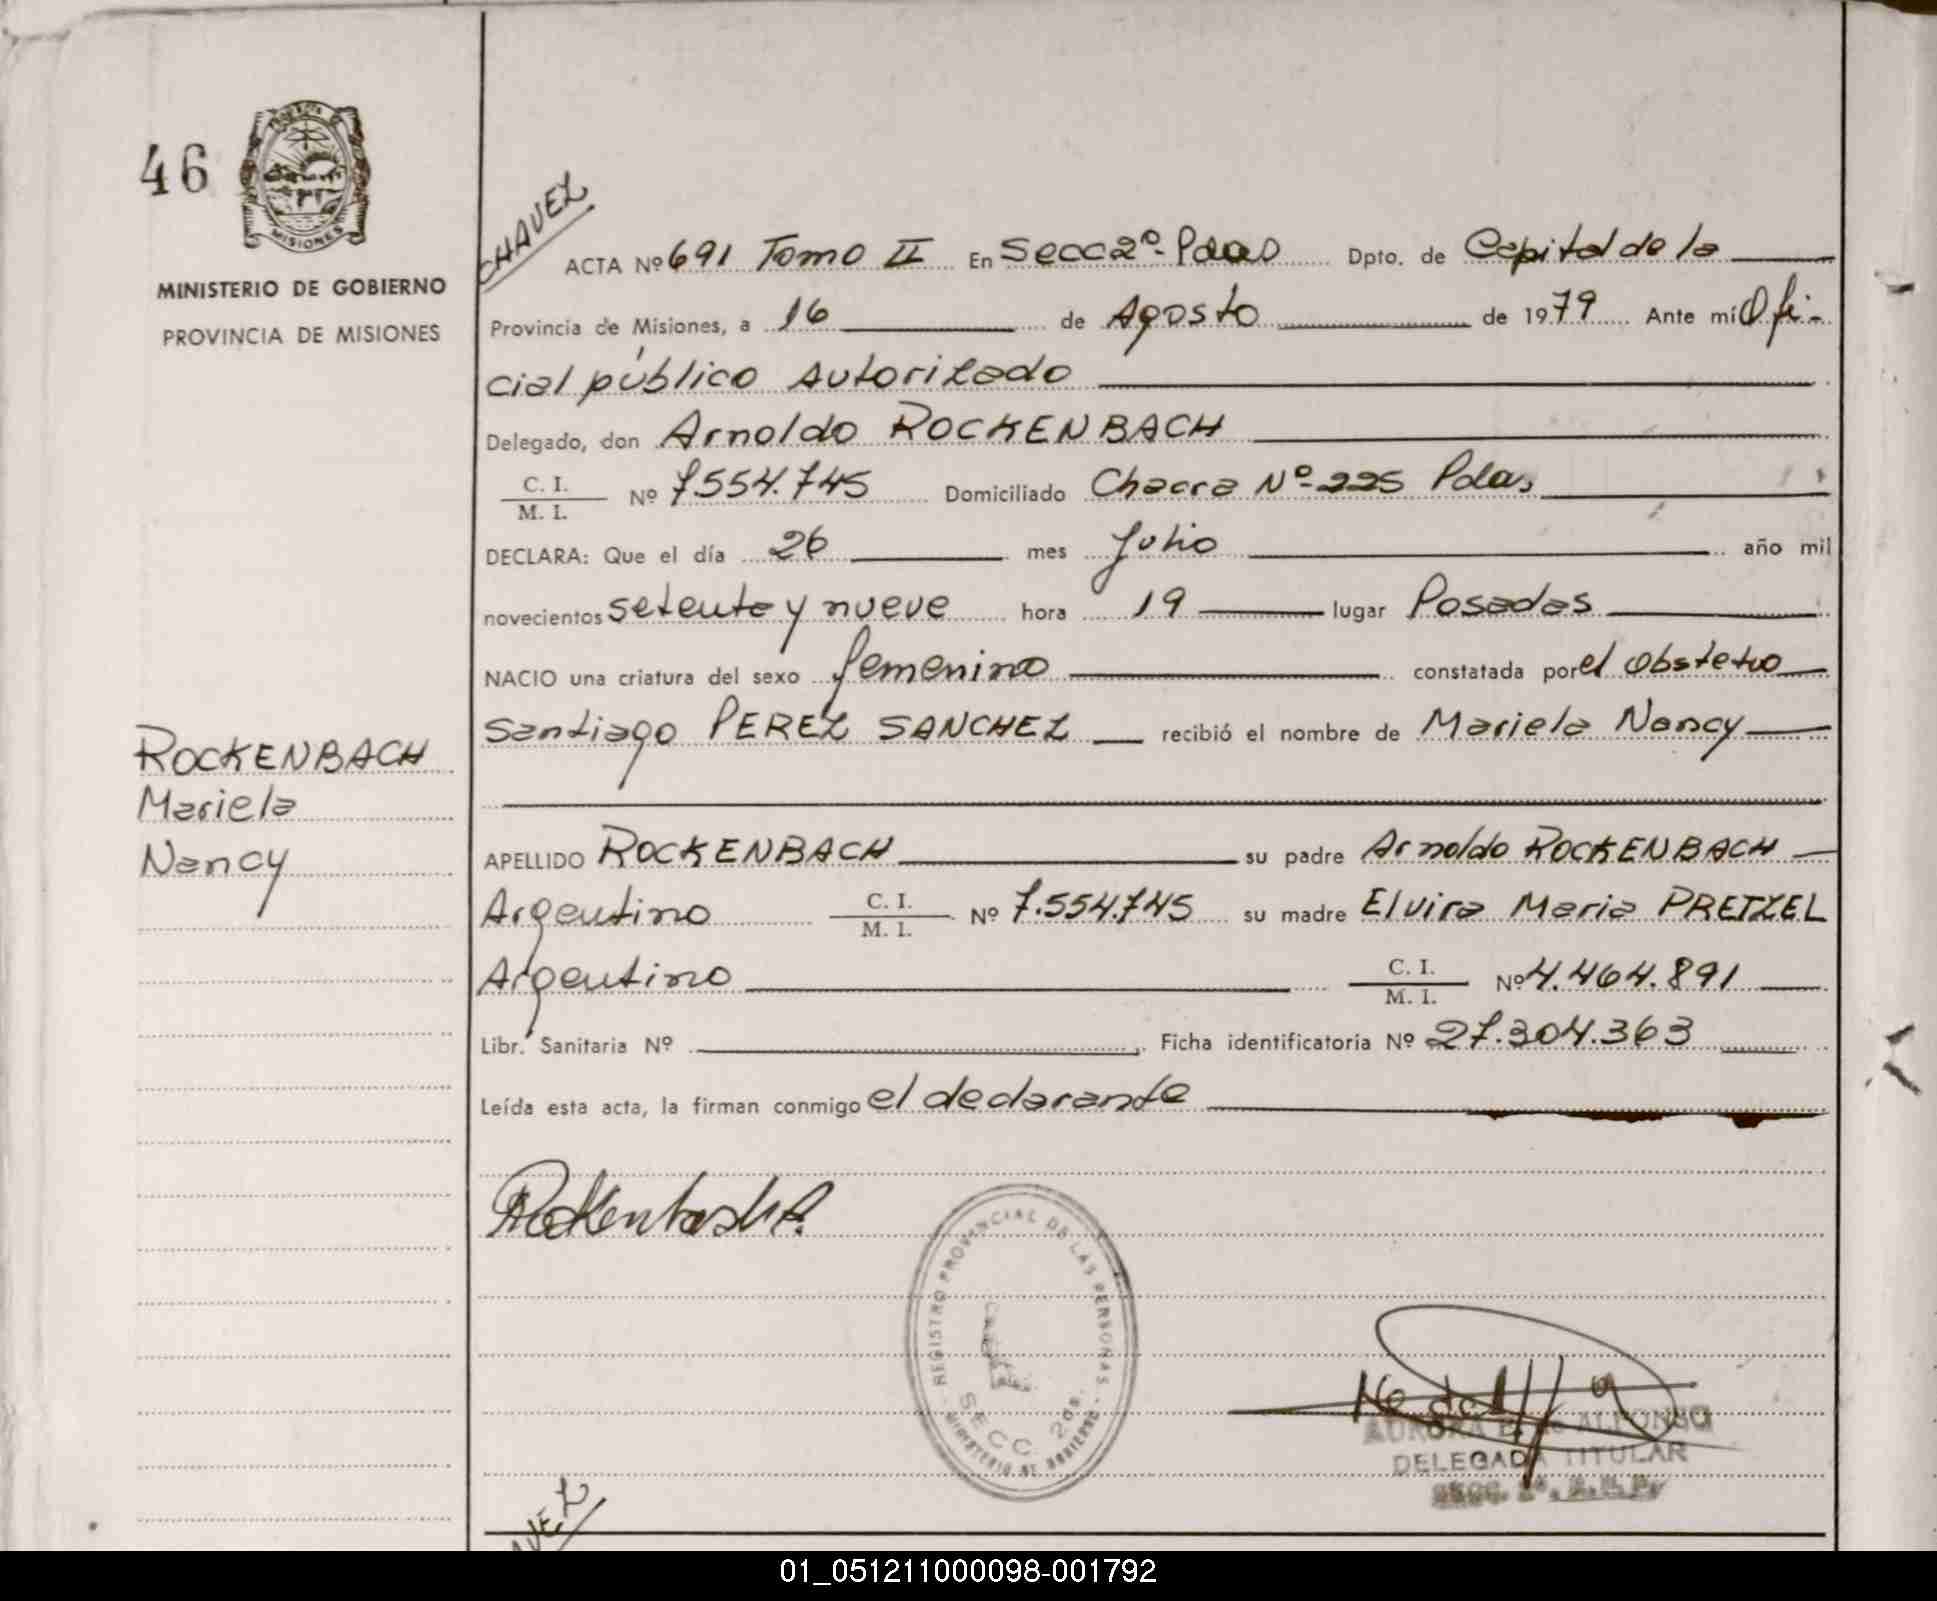 46
MISIONES
MINISTERIO DE GOBIERNO
PROVINCIA DE MISIONES
ROCKENBACH
Mariela
Nancy
CHAVEZ
ACTA Nº 691 Tomo II En Secc 2º- Pdas Dpto. de Capital de la
Provincia de Misiones, a 16 de Agosto de 1979 Ante mí Ofi-
cial público Autorizado
Delegado, don Arnoldo ROCKENBACH
C. I.
M. I. Nº 7554.745 Domiciliado Chacra Nº 225 Pdas,
DECLARA: Que el día 26 mes Julio año mil
novecientos setenta y nueve hora 19 lugar Posadas
NACIO una criatura del sexo femenino constatada por el obstetra
Santiago PEREZ SANCHEZ recibió el nombre de Mariela Nancy
APELLIDO ROCKENBACH su padre Arnoldo ROCKENBACH
Argentino C. I.
M. I. Nº 7.554.745 su madre Elvira Maria PRETZEL
Argentino C. I.
M. I. Nº 4.464.891
Libr. Sanitaria Nº Ficha identificatoria Nº 27.304.363
Leída esta acta, la firman conmigo el declarante
REGISTRO PROVINCIAL DE LAS PERSONAS
SECC. 2da.
MINISTERIO DE GOBIERNO
AURORA ALFONSO
DELEGADA TITULAR
01_051211000098-001792